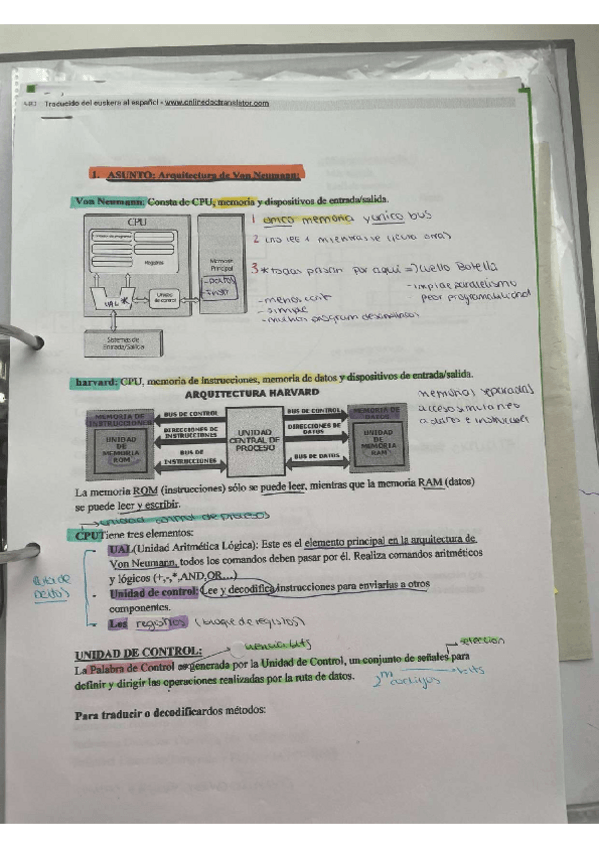 Traducido del euskera al español - www.onlinedoctranslator.com
1. ASUNTO: Arquitectura de Von Neumann:
Von Neumann: Consta de CPU, memoria y dispositivos de entrada/salida.
CPU
Registros
UAL
Unidad de control
Memoria Principal
- Datos
- Instr
Sistemas de Entrada/Salida
1 unico memoria y unico bus
2 uno lee y mientras se
3 * todas pasan por aquí => Cuello Botella
- simple
- impide paralelismo
harvard: CPU, memoria de instrucciones, memoria de datos y dispositivos de entrada/salida.
ARQUITECTURA HARVARD
MEMORIA DE INSTRUCCIONES
UNIDAD DE MEMORIA ROM
BUS DE CONTROL
DIRECCIONES DE INSTRUCCIONES
BUS DE INSTRUCCIONES
UNIDAD CENTRAL DE PROCESO
BUS DE CONTROL
DIRECCIONES DE DATOS
BUS DE DATOS
MEMORIA DE DATOS
UNIDAD DE MEMORIA RAM
memorias separadas
La memoria ROM (instrucciones) sólo se puede leer, mientras que la memoria RAM (datos)
se puede leer y escribir.
unidad control de proceso
CPUTiene tres elementos:
- UAL(Unidad Aritmética Lógica): Este es el elemento principal en la arquitectura de
Von Neumann, todos los comandos deben pasar por él. Realiza comandos aritméticos
y lógicos (+,-,*,AND,OR...)
- Unidad de control: Lee y decodifica instrucciones para enviarlas a otros
componentes.
- Los registros (bloque de registros)
Ruta de Datos
UNIDAD DE CONTROL:
La Palabra de Control es generada por la Unidad de Control, un conjunto de señales para
definir y dirigir las operaciones realizadas por la ruta de datos.
Para traducir o decodificardos métodos: